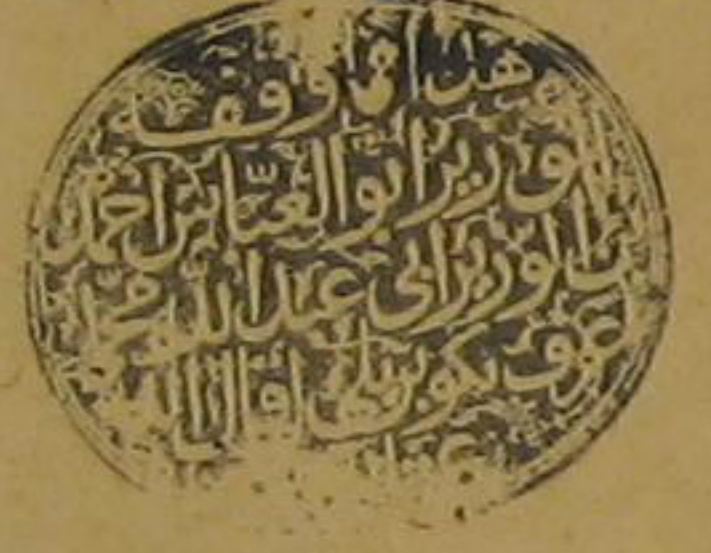 هذا مما وقفه
الوزير ابو العباس احمد
بن الوزير ابي عبد الله محمد
عرف بكوبريلي اقال الله